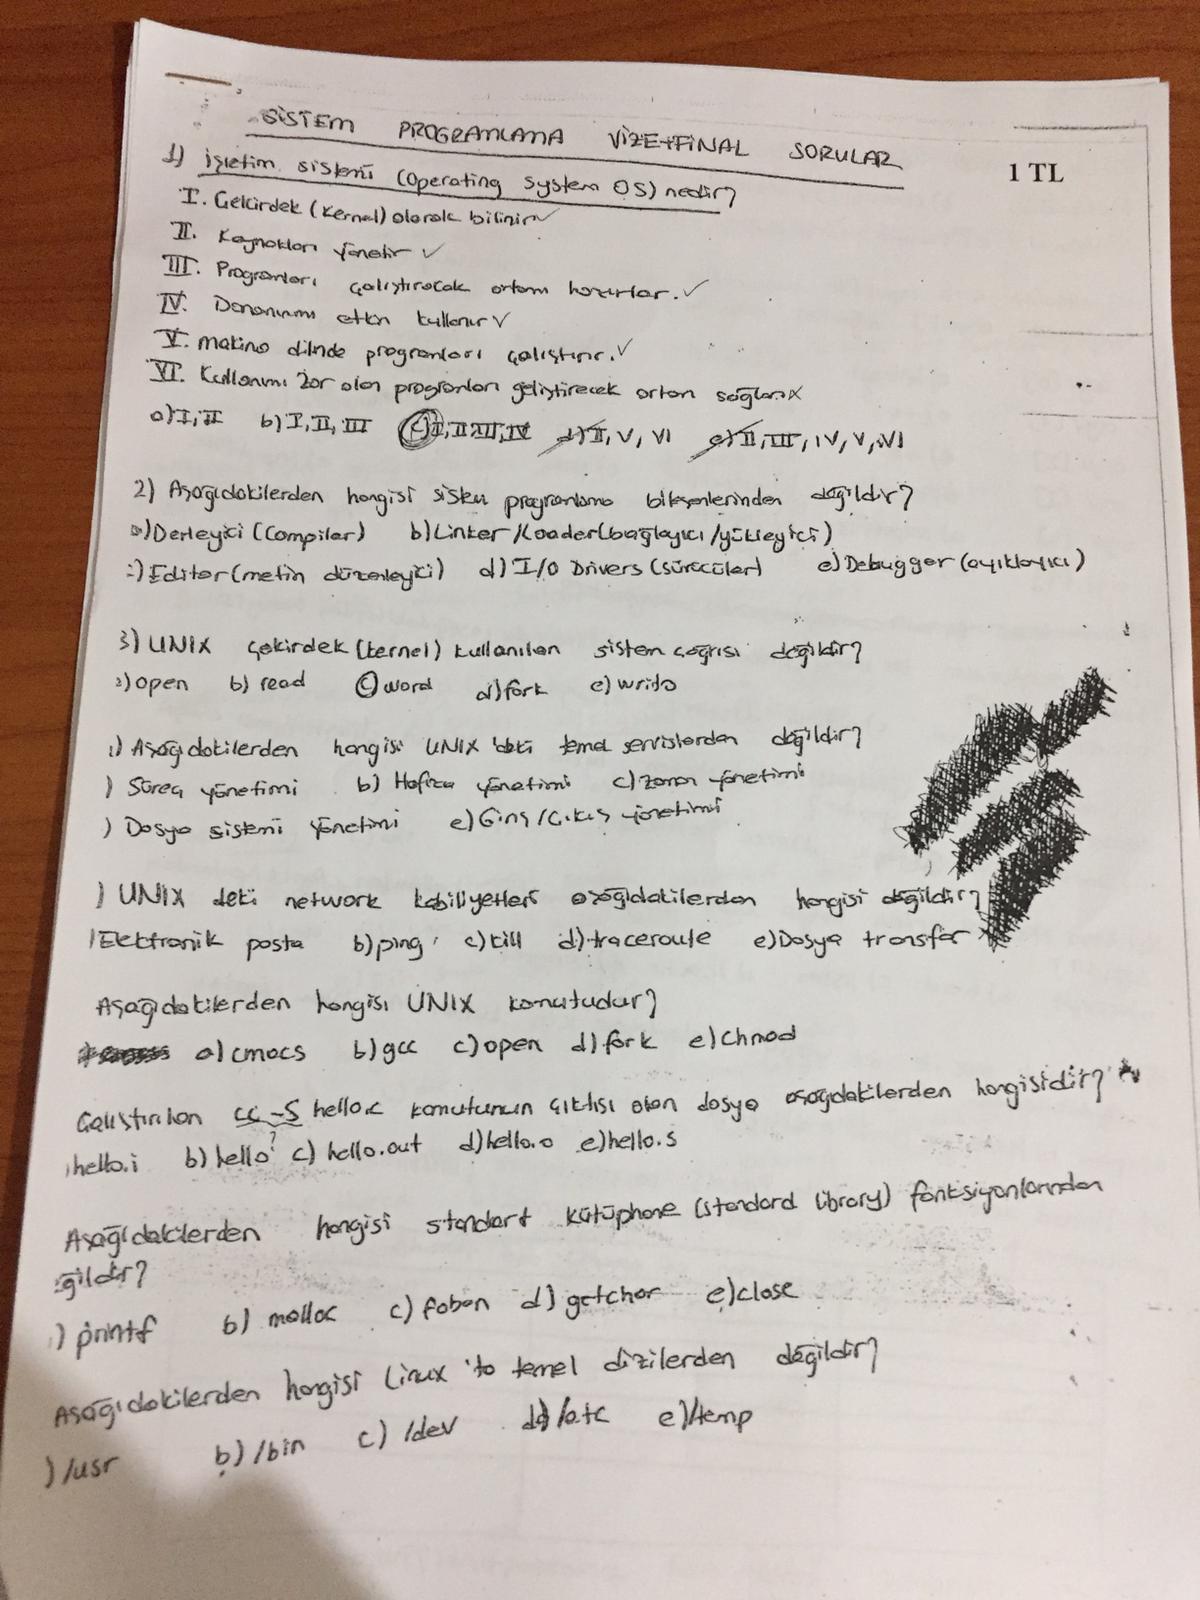 SİSTEM PROGRAMLAMA VİZE+FİNAL SORULAR
1 TL
1) İşletim sistemi (Operating System OS) nedir?
I. Çekirdek (Kernel) olarak bilinir ✓
II. Kaynakları yönetir ✓
III. Programları çalıştıracak ortam hazırlar. ✓
IV. Donanımı etkin kullanır ✓
V. makina dilinde programları çalıştırır. ✓
VI. Kullanımı zor olan programları geliştirecek ortam sağlar. X
a) I, II b) I, II, III c) I, II, III, IV d) II, V, VI e) II, III, IV, V, VI
2) Aşağıdakilerden hangisi sistem programlama bileşenlerinden değildir?
a) Derleyici (Compiler) b) Linker/Loader (bağlayıcı/yükleyici)
c) Editor (metin düzenleyici) d) I/O Drivers (sürücüler) e) Debugger (ayıklayıcı)
3) UNIX çekirdek (kernel) kullanılan sistem çağrısı değildir?
a) open b) read c) word d) fork e) write
) Aşağıdakilerden hangisi UNIX 'deki temel servislerden değildir?
) Süreç yönetimi b) Hafıza yönetimi c) zaman yönetimi
) Dosya sistemi yönetimi e) Giriş/Çıkış yönetimi
) UNIX deki network kabiliyetleri aşağıdakilerden hangisi değildir?
) Elektronik posta b) ping c) kill d) traceroute e) Dosya transfer
Aşağıdakilerden hangisi UNIX komutudur?
a) cmacs b) gcc c) open d) fork e) chmod
Çalıştırılan cc -S hello.c komutunun çıktısı olan dosya aşağıdakilerden hangisidir?
hello.i b) hello ? c) hello.out d) hello.o e) hello.s
Aşağıdakilerden hangisi standart kütüphane (standard library) fonksiyonlarından
ğildir?
) printf b) malloc c) d) getchar e) close
Aşağıdakilerden hangisi Linux 'ta temel dizilerden değildir?
) /usr b) /bin c) /dev d) /etc e) /temp